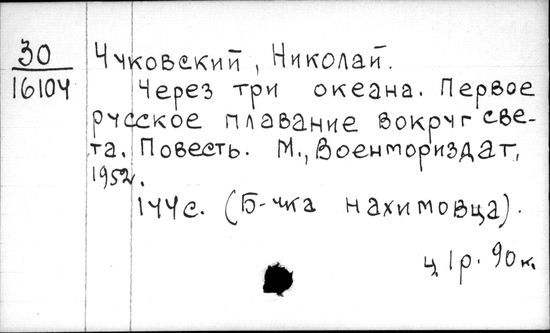 30
16104
Чуковский, Николай.
Через три океана. Первое
русское плавание вокруг све-
та. Повесть. М., Военмориздат,
1952.
144с. (Б-чка нахимовца).
ц. 1р. 90к.